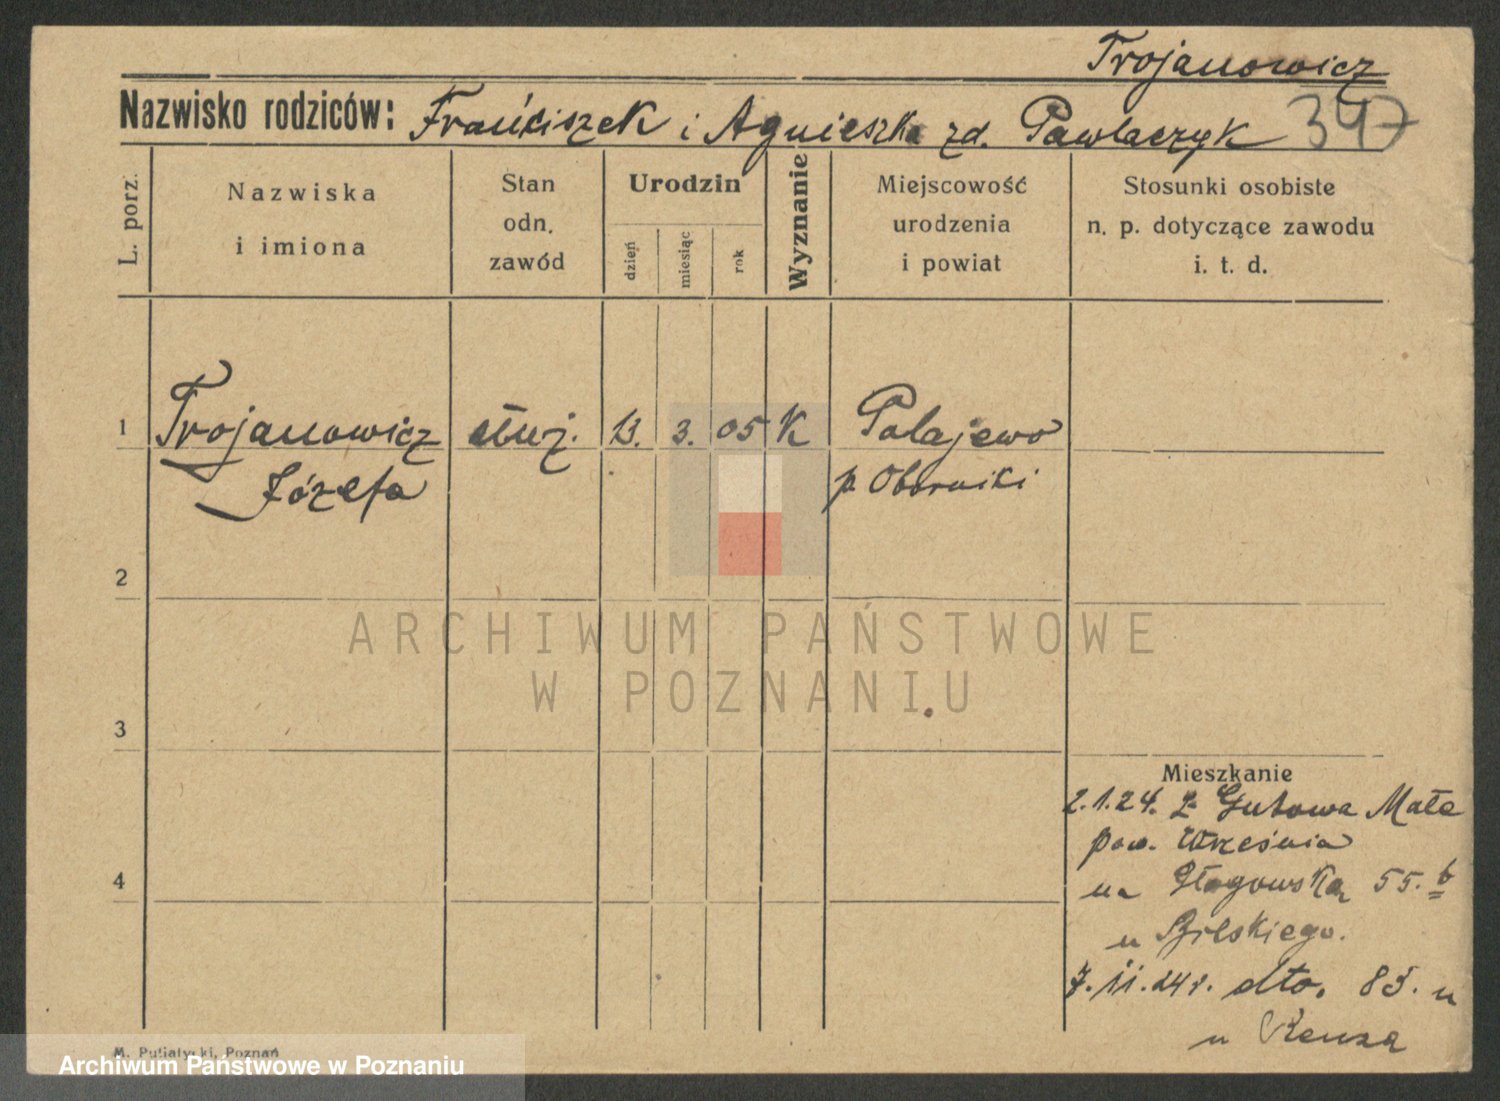 Trojanowicz
Nazwisko rodziców: Franciszek i Agnieszka zd. Pawlaczyk 347
L. porz.
Nazwiska
i imiona
Stan
odn.
zawód
Urodzin
dzień
miesiąc
rok
Wyznanie
Miejscowość
urodzenia
i powiat
Stosunki osobiste
n. p. dotyczące zawodu
i. t. d.
1 Trojanowicz służ. 13. 3. 05 K Połajewo
Józefa p. Oborniki
2
ARCHIWUM PAŃSTWOWE
W POZNANIU
3
Mieszkanie
2.1.24. z Gutowa Małe
pow. Września
4
na Głogowską 55. b
u
7.11.24 r. dto. 85. u
u
M. Putiatycki, Poznań
Archiwum Państwowe w Poznaniu